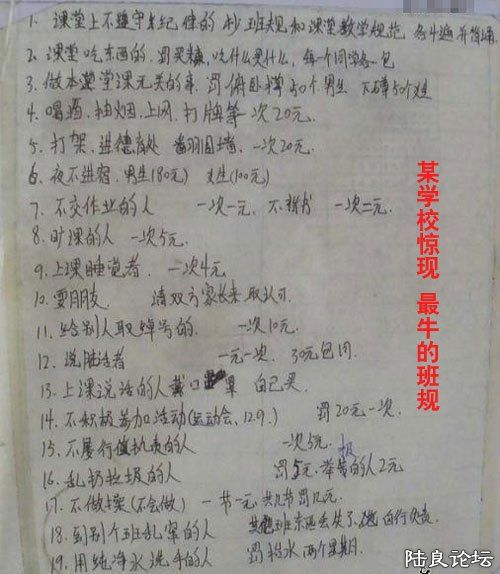 1. 课堂上不遵守纪律的 抄班规和课堂教学规范 各4遍并背诵
2. 课堂吃东西的. 罚买糖, 吃什么买什么, 每个同学各一包
3. 做本堂课无关的事 罚俯卧撑50个男生 下蹲50个女生
4. 喝酒、抽烟、上网、打牌等 一次20元.
5. 打架、进德育处 翻羽围墙、一次20元.
6. 夜不进宿、男生(80元) 女生(100元)
7. 不交作业的人 一次一元、不背书 一次二元.
8. 旷课的人 一次5元.
9. 上课睡觉者. 一次4元
10. 耍朋友. 请双方家长来取认可.
11. 给别人取绰号的. 一次10元.
12. 说脏话者 一元一次. 30元包月.
13. 上课说话的人戴口罩 自己买.
14. 不积极参加活动(运动会、12.9.) 罚20元一次.
15. 不履行值执责的人 一次5元.
16. 乱扔垃圾的人 罚5元. 举报的人2元
17. 不做操(不会做) 一节一元 共几节罚几元.
18. 到别个班乱窜的人 班东西丢失了, 自行负责.
19. 用纯净水洗手的人 罚抬水两个星期.
某学校惊现 最牛的班规
陆良论坛